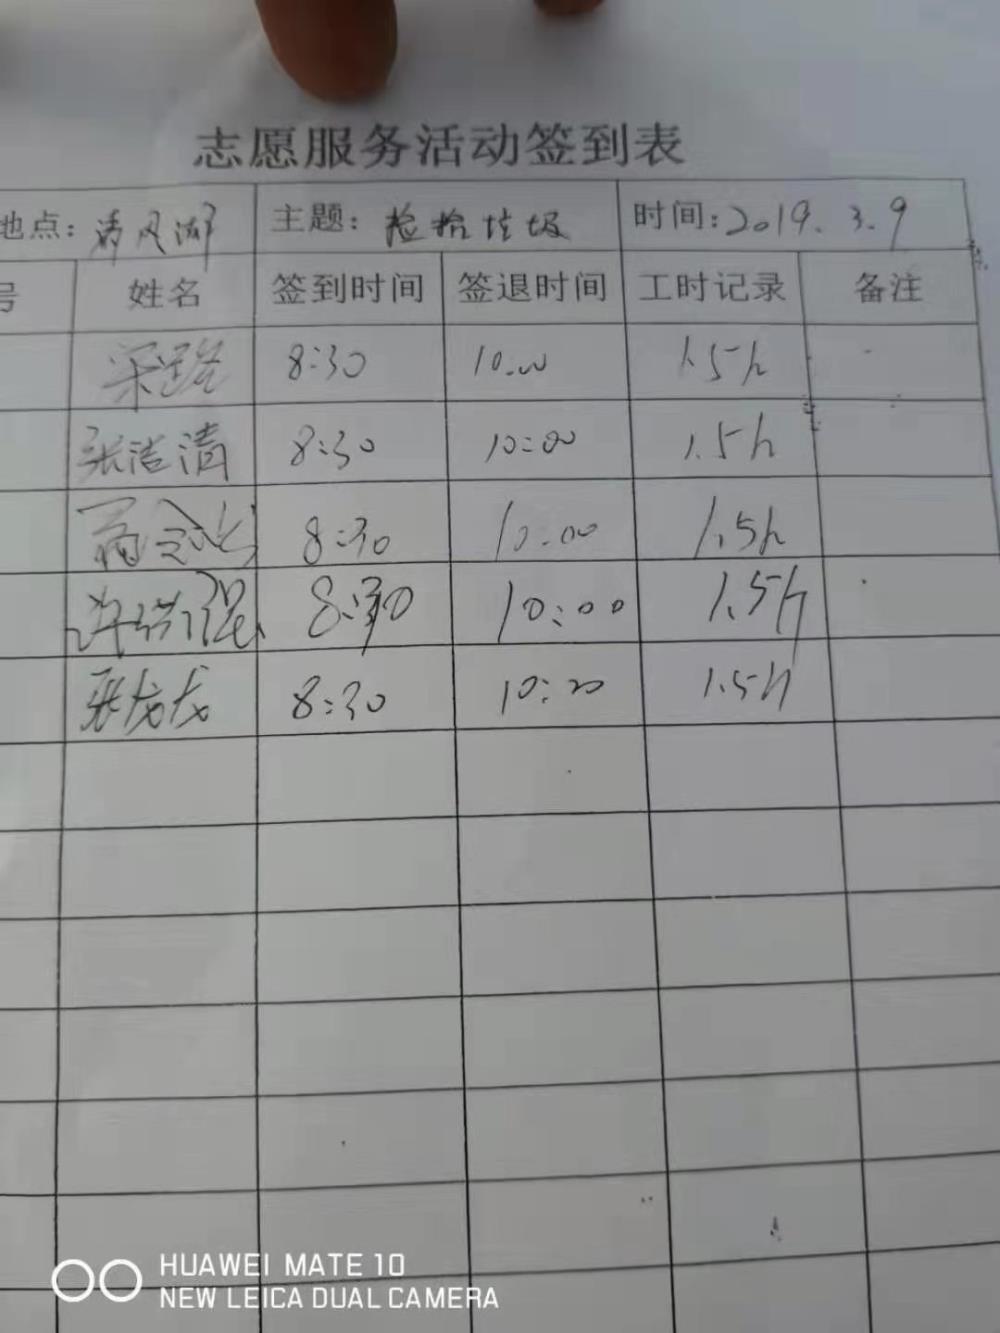 志愿服务活动签到表
地点: 清风湖 主题: 捡拾垃圾 时间: 2019.3.9
号 姓名 签到时间 签退时间 工时记录 备注
8:30 10:00 1.5h
张洁清 8:30 10:00 1.5h
8:30 10:00 1.5h
8:30 10:00 1.5h
张龙龙 8:30 10:00 1.5h
HUAWEI MATE 10
NEW LEICA DUAL CAMERA